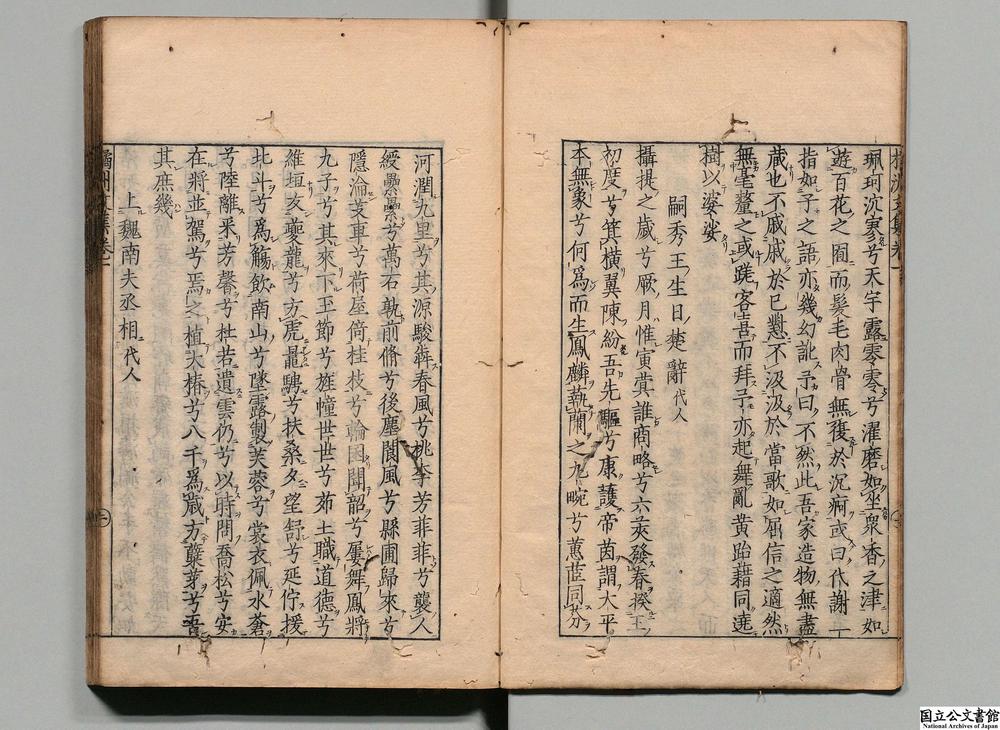 珮珂泬寥兮天宇露零零兮濯磨如坐衆香之津如
遊百花之囿而髮毛肉骨無復於沉痾或曰代謝一
指如子之語亦幾幻訛予曰不然此吾家造物無盡
藏也不戚戚於已懟不汲汲於當歌如屈信之適然
無毫釐之或蹉客喜而拜予亦起舞亂黃跆藉同遶
樹以婆娑
嗣秀王生日楚辭代人
攝提之歲兮厥月惟寅蓂誰商略兮六莢發春揆王
初度兮箕橫翼陳紛吾先驅兮康護帝茵謂大平
本無象兮何爲而生鳳麟蓺蘭之九畹兮蕙茝同芬
河潤九里兮其源駿犇春風兮桃李芳菲菲兮襲人
綬纍纍兮萬石孰前脩兮後塵閬風兮縣圃歸來兮
隱淪芰車兮荷屋倚桂枝兮輪囷聞韶兮屢舞鳳將
九子兮其來下至節兮旌幢世世兮茆土職道德兮
維垣友夔龍兮方虎驂騁兮扶桑夕望舒兮延佇援
北斗兮爲觴飲南山兮墜露製芙蓉兮裳衣佩水蒼
兮陸離釆芳馨兮杜若遺雲仍兮以時問喬松兮安
在將並駕兮焉之植大椿兮八千爲歲方蘖芽兮吾
其庶幾
上魏南夫丞相代人
橘洲文集卷一
国立公文書館
National Archives of Japan